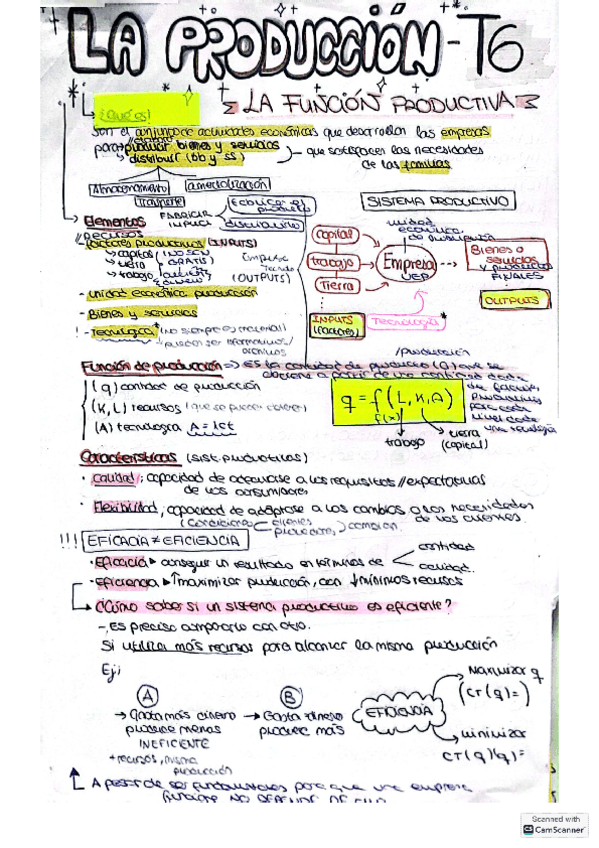 LA PRODUCCIÓN - T6
¿Qué es?
LA FUNCIÓN PRODUCTIVA
Son el conjunto de actividades económicas que desarrollan las empresas
para producir bienes y servicios
distribuir (bb y ss)
que satisfacen las necesidades
de las familias
Almacenamiento
amortización
Transporte
Elementos
FABRICAR
IMPLICA
distribuirlo
SISTEMA PRODUCTIVO
recursos
factores productivos (INPUTS)
capital
tierra
trabajo
(OUTPUTS)
- unidad económica producción
- Bienes y servicios
- Tecnología (no siempre es material)
capital
trabajo
Tierra
unidad
económica
de producción
Empresa
UEP
Bienes o
servicios
y productos
FINALES
OUTPUTS
INPUTS
(factores)
Tecnología*
Función de producción => Es la cantidad de producto (q) que se
(q) cantidad de producción
(K, L) recursos
(A) tecnología A = 1ct
q = f (L, K, A)
f(x)
trabajo
tierra
(capital)
de factores
productivos
para cada
nivel dado
una tecnología
Características (sist. productivos)
· calidad; capacidad de adecuarse a los requisitos // expectativas
de los consumidores
· Flexibilidad, capacidad de adaptarse a los cambios o las necesidades
de los clientes
!!! EFICACIA ≠ EFICIENCIA
· Eficacia ▸ conseguir un resultado en términos de
cantidad
calidad.
- Eficiencia ▸ ↑maximizar producción, con ↓mínimos recursos
¿Cómo saber si un sistema productivo es eficiente?
- Es preciso compararlo con otro.
Si utiliza más recursos para alcanzar la misma producción
Ej;
A
B
→ Gasta más dinero
produce menos
INEFICENTE
+ recursos, misma
producción
→ Gasta - dinero
produce más
EFICIENCIA
Maximizar q
(CT(q)=)
minimizar
CT(q)(q)=
A pesar de ser fundamentales para que una empresa
funcione NO DEPENDE DE ELLO
Scanned with
CamScanner